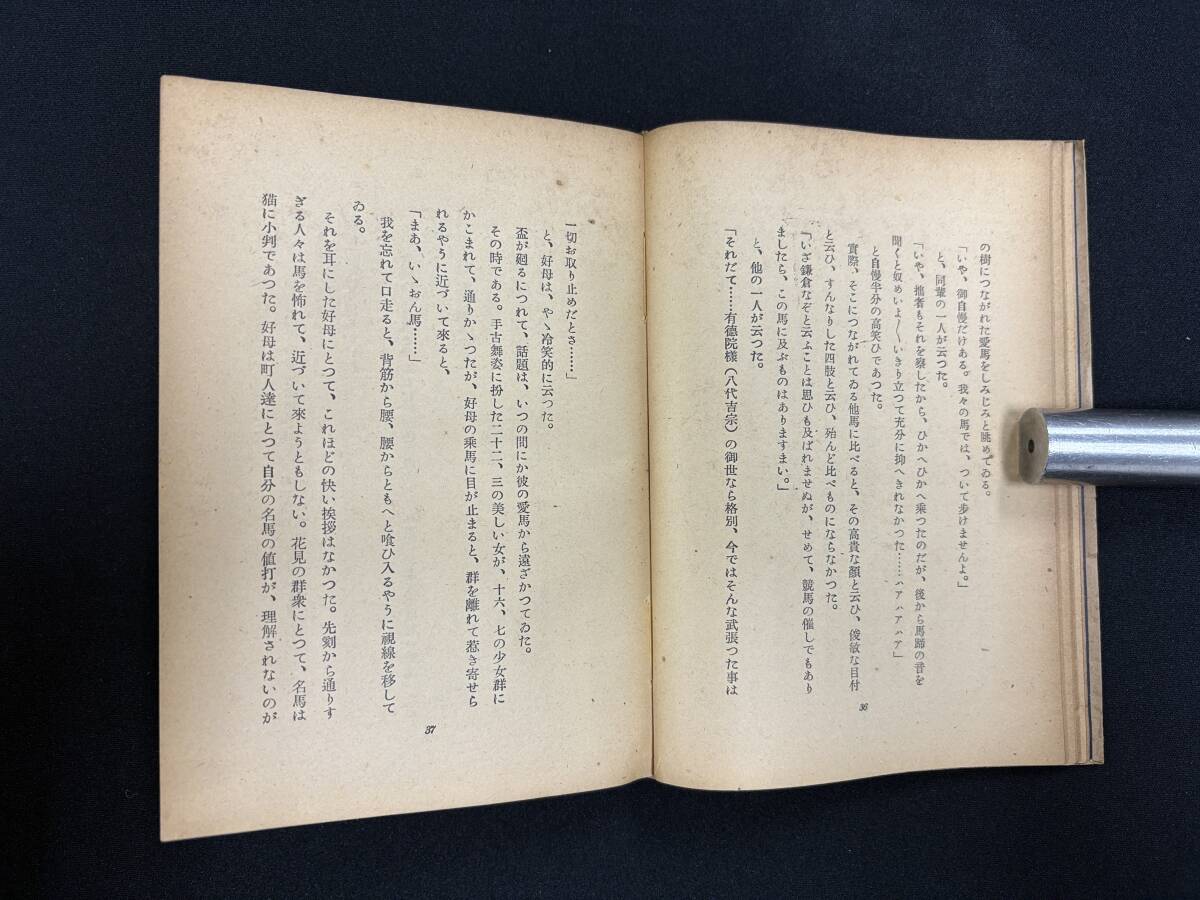 の樹につながれた愛馬をしみじみと眺めてゐる。
「いや、御自慢だけある。我々の馬では、ついて歩けませんよ。」
と、同輩の一人が云つた。
「いや、拙者もそれを察したから、ひかへひかへ乗つたのだが、後から馬蹄の音を
聞くと奴めいよ〳〵いきり立つて充分に抑へきれなかつた……ハアハアハア」
と自慢半分の高笑ひであつた。
實際、そこにつながれてゐる他馬に比べると、その高貴な顔と云ひ、俊敏な目付
と云ひ、すんなりした四肢と云ひ、殆んど比べものにならなかつた。
「いざ鎌倉なぞと云ふことは思ひも及ばれませぬが、せめて、競馬の催しでもあり
ましたら、この馬に及ぶものはありますまい。」
と、他の一人が云つた。
「それだて……有德院様（八代吉宗）の御世なら格別、今ではそんな武張つた事は
36
一切お取り止めだとさ……」
と、好母は、やゝ冷笑的に云つた。
盃が廻るにつれて、話題は、いつの間にか彼の愛馬から遠ざかつてゐた。
その時である。手古舞姿に扮した二十二、三の美しい女が、十六、七の少女群に
かこまれて、通りかゝつたが、好母の乗馬に目が止まると、群を離れて惹き寄せら
れるやうに近づいて來ると、
「まあ、いゝおん馬……」
我を忘れて口走ると、背筋から腰、腰からともへと喰ひ入るやうに視線を移して
ゐる。
それを耳にした好母にとつて、これほどの快い挨拶はなかつた。先刻から通りす
ぎる人々は馬を怖れて、近づいて來ようともしない。花見の群衆にとつて、名馬は
猫に小判であつた。好母は町人達にとつて自分の名馬の値打が、理解されないのが
37